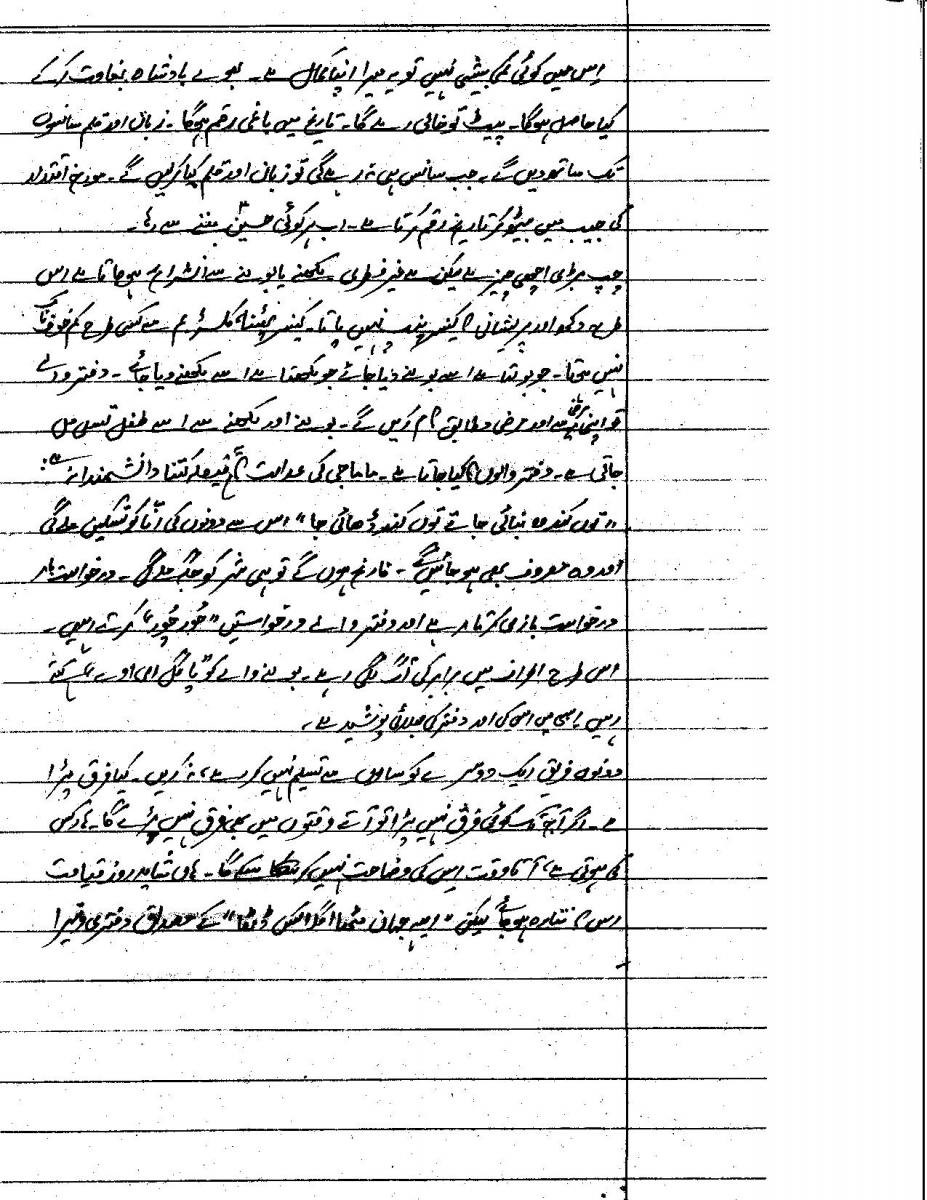 اس میں کوئی کمی بیشی نہیں تو یہ میرا اپنا کمال ہے۔ بھوے بادشاہ بغاوت کر کے
کیا حاصل ہوگا۔ پیٹ تو خالی رہے گا۔ تاریخ میں باغی رقم ہوگا۔ زبان اور قلم سانسوں
تک ساتھ دیں گے۔ جب سانس ہی نہ رہے گی تو زبان اور قلم کیا کرلیں گے۔ مورخ اقتدار
کی جیب میں بیٹھ کر تاریخ رقم کرتا ہے۔ اب ہر کوئی حسین بننے سے رہا۔
چپ بڑی اچھی چیز ہے لیکن ہے غیر فطری۔ لکھنے یا بولنے سے انشراح ہو جاتا ہے اس
طرح دکھ اور پریشانی کا کینسر پیدا نہیں ہو پاتا۔ کینسر ہیپاٹائٹس سے کسی طرح کم خوفناک
نہیں ہوتا۔ جو بولتا ہے اسے بولنے دیا جائے جو لکھتا ہے اسے لکھنے دیا جائے۔ دفتر والے
تو اپنی مرضی اور غرض کے مطابق کام کریں گے۔ بولنے اور لکھنے سے اسے طفل تسلی مل
جاتی ہے۔ دفتر والوں کا کیا جاتا ہے۔ ماما جی کی عدالت کا فیصلہ کتنا دانشمندانہ ہے:
"توں کندھ بنائی جاتے توں کندھ ڈھائی جا" اس سے دونوں کی آتما کو تسکین ملے گی
اور وہ مصروف بھی ہو جائیں گے۔ فارغ ہوں گے تو ہی شر کو جگہ ملے گی۔ درخواست باز
درخواست بازی کرتا رہے اور دفتر والے درخواستیں "خُورد بُرد" کرتے رہیں۔
اس طرح اطراف میں برابر کی آگ لگی رہے۔ بولنے والے کو پاگل اور کہتے
رہیں اسی میں اس کی اور دفتر کی بھلائی پوشیدہ ہے۔
دونوں فریق ایک دوسرے کو سالوں سے تسلیم نہیں کر رہے، نہ کریں۔ کیا فرق پڑا
ہے۔ اگر آج تک کوئی فرق نہیں پڑا تو آتے وقتوں میں بھی فرق نہیں پڑے گا۔ ہار کس
کی ہوتی ہے، آتا وقت اس کی وضاحت نہیں کر سکے گا۔ ہاں شاید روز قیامت
اس کا نتارہ ہو جائے لیکن "ایہہ جہان مٹھا اگلا کس ڈٹھا" کے مصداق دفتری وتیرا